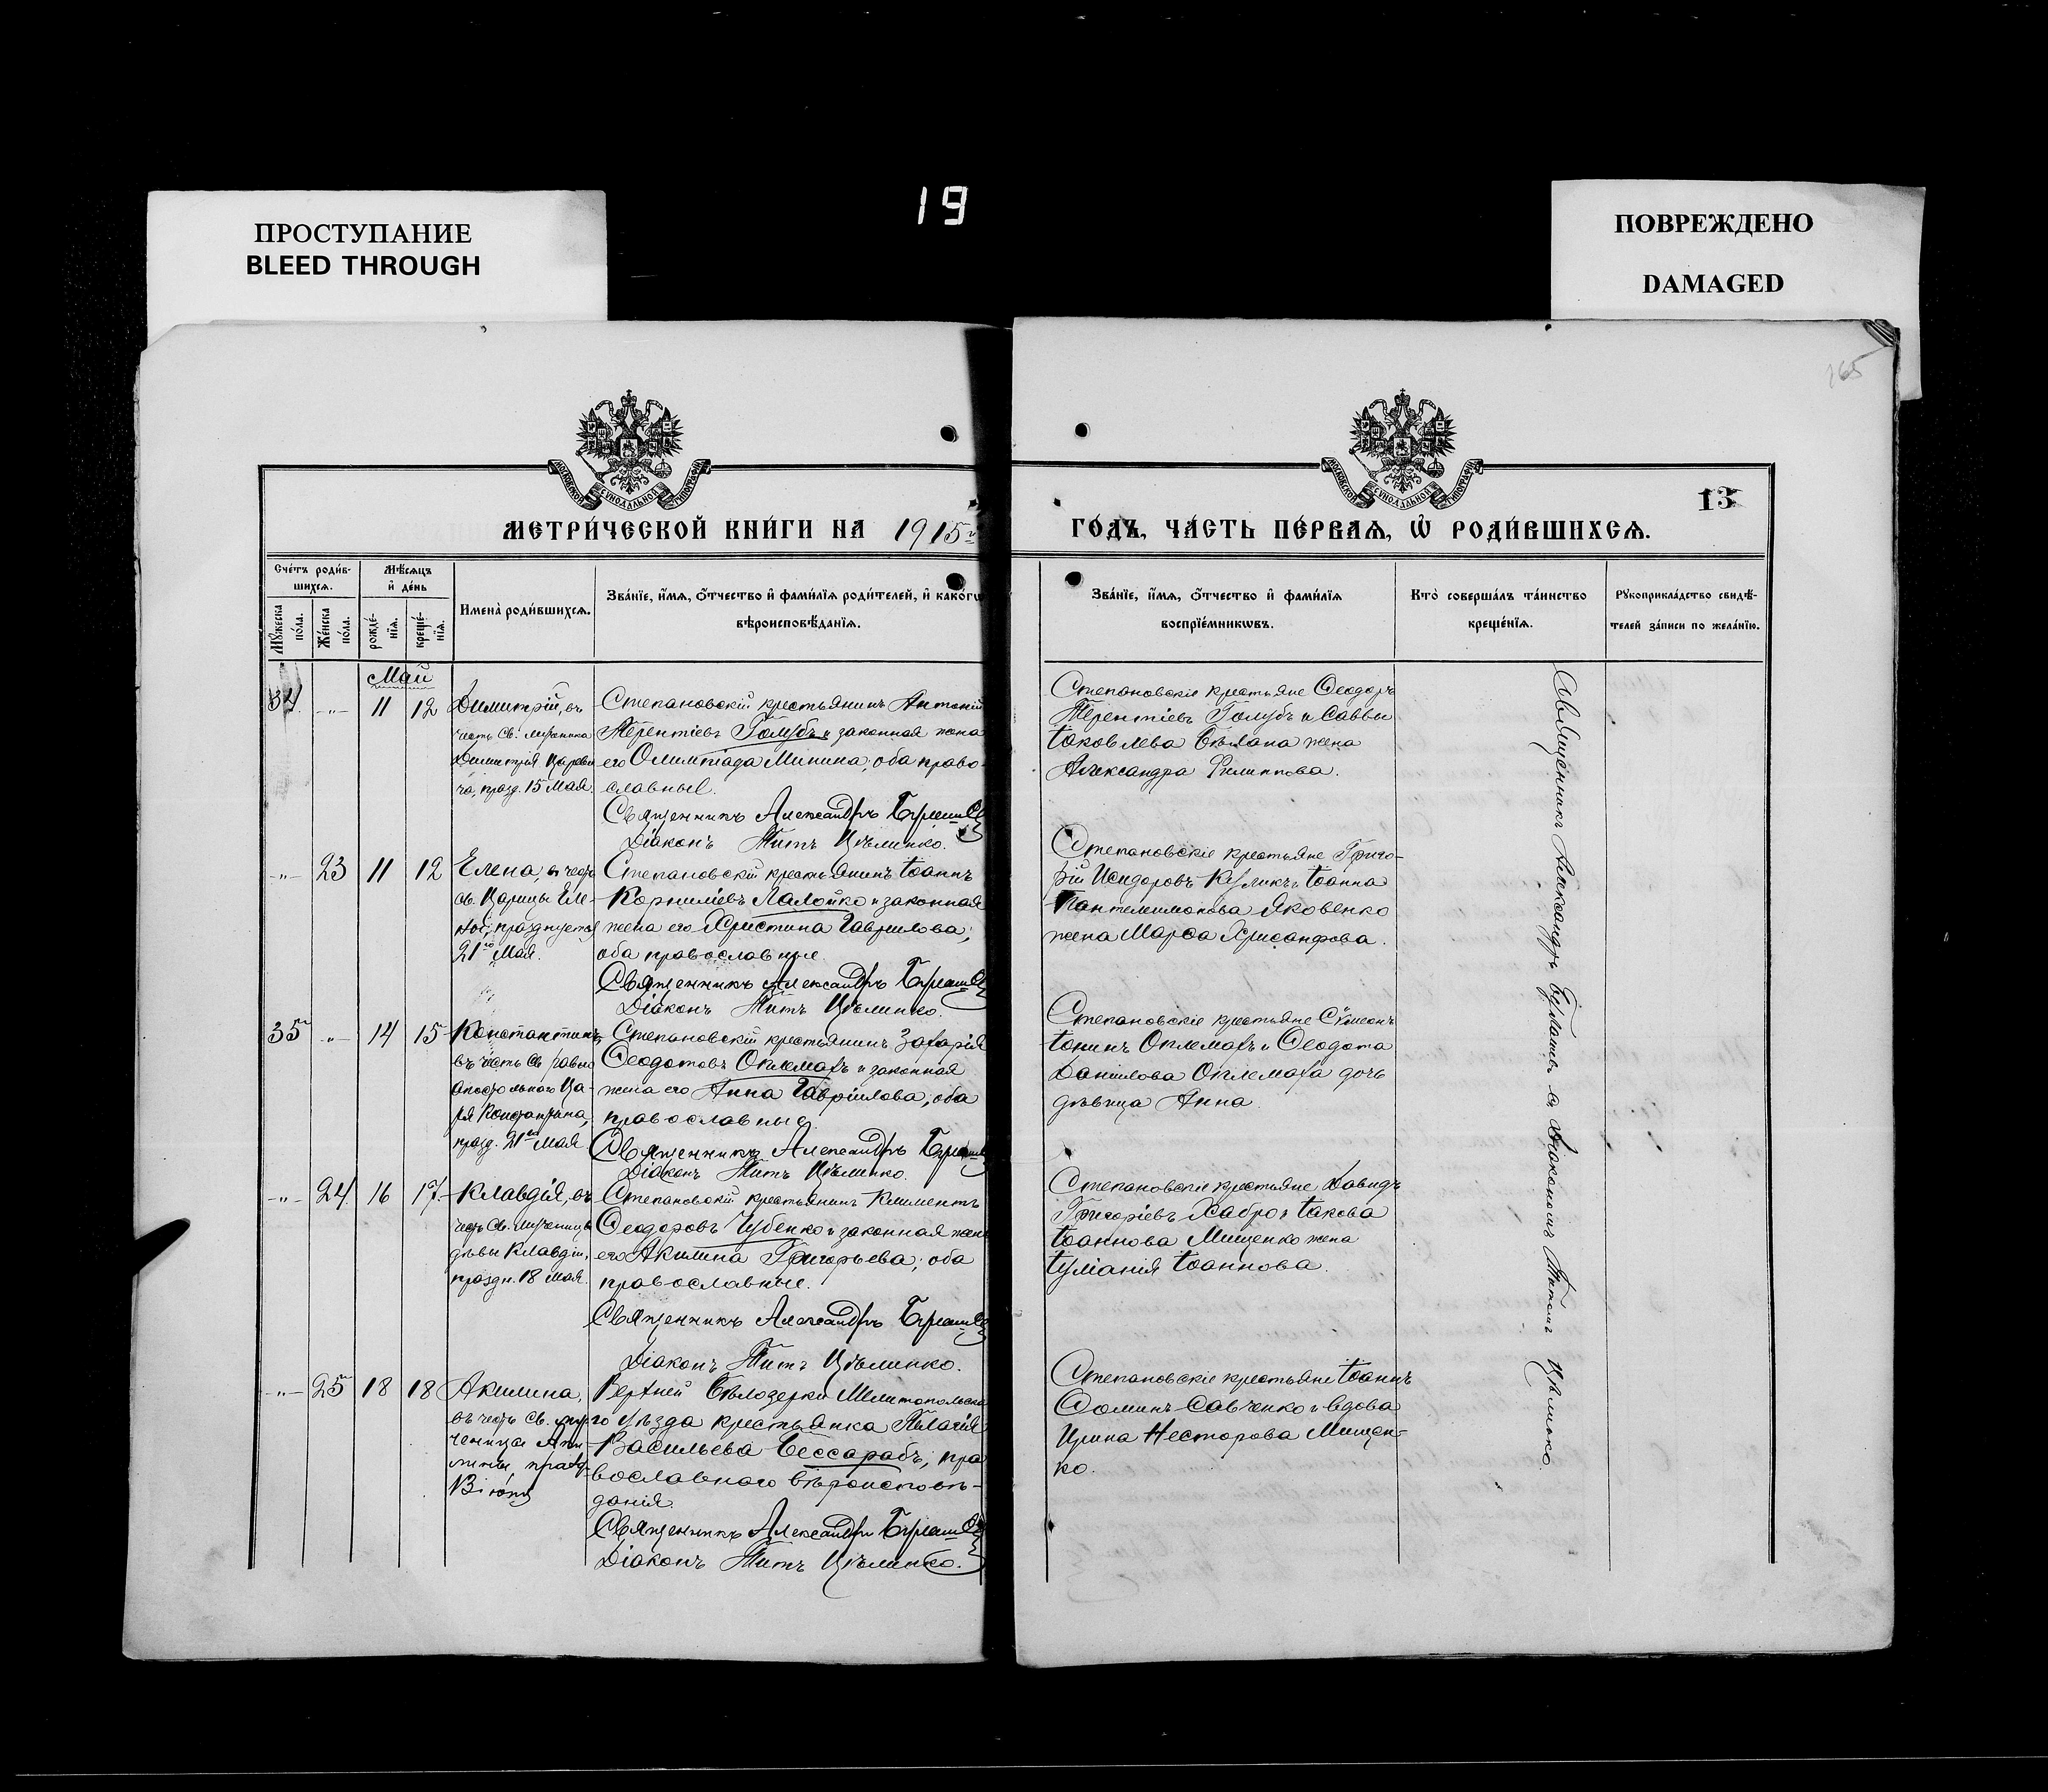 19
ПРОСТУПАНИЕ
BLEED THROUGH
ПОВРЕЖДЕНО
DAMAGED
165
13
МОСКОВСКОЙ СѴНОДАЛЬНОЙ ТИПОГРАФІИ
МОСКОВСКОЙ СѴНОДАЛЬНОЙ ТИПОГРАФІИ
МЕТРИ́ЧЕСКОЙ КНИ́ГИ НА 1915й
ГО́ДЪ, ЧА́СТЬ ПЕ́РВАѦ, Ѡ҆ РОДИ́ВШИХСѦ.
Сче́тъ роди́в-
шихсѧ.
Мꙋ́жеска
по́ла.
Же́нска
по́ла.
Мѣ́сѧцъ
и҆ де́нь
рожде́-
нїѧ.
креще́-
нїѧ.
И҆мена̀ роди́вшихсѧ.
Зва́нїе, и҆́мѧ, ѻ҆́тчество и҆ фами́лїѧ роди́телей, и҆ како́гѡ
вѣроисповѣ́данїѧ.
Зва́нїе, и҆́мѧ, ѻ҆́тчество и҆ фами́лїѧ
воспрїе́мникѡвъ.
Кто̀ соверша́лъ та́инство
креще́нїѧ.
Рꙋкоприкла́дство свидѣ́-
телей за́писи по жела́нїю.
Май
34. -„- 11 12
Димитрій, въ
честь Св. мученика
Димитрія Цареви
ча, празд. 15 Мая.
Степановскій крестьянинъ Антоній
Терентіевъ Голубъ и законная жена
его Олимпіада Минина; оба право-
славные.
Священникъ Александръ
Діаконъ Титъ Цѣлинко.
Степановскіе крестьяне Ѳеодоръ
Терентіевъ Голубъ и Саввы
Іаковлева Бѣлана жена
Александра Филиппова.
-„- 23 11 12
Елена, въ честь
св. Царицы Еле-
ны, празднуется
21го Мая.
Степановскій крестьянинъ Іоаннъ
Корниліевъ Лалойко и законная
жена его Христина Гаврилова;
оба православные.
Священникъ Александръ
Діаконъ Титъ Цѣлинко.
Степановскіе крестьяне Григо-
рій Исидоровъ Куликъ и Іоанна
Пантелеимонова Яковенко
жена Марѳа Хрисанфова.
35 -„- 14 15
Константинъ,
въ честь Св. равно
апостольнаго Ца-
ря Константина,
празд. 21го Мая
Степановскій крестьянинъ Захарія
Ѳеодотовъ Оплемахъ и законная
жена его Анна Гавріилова, оба
православные.
Священникъ Александръ
Діаконъ Титъ Цѣлинко.
Степановскіе крестьяне Сѵмеонъ
Іонинъ Оплемахъ и Ѳеодота
Даніилова Оплемаха дочь
дѣвица Анна.
-„- 24 16 17
Клавдія, въ
честь Св. мученицы
дѣвы Клавдіи,
праздн. 18 мая.
Степановскій крестьянинъ Климентъ
Ѳеодоровъ Чубенко и законная жена
его Акилина Григорьева; оба
православные.
Священникъ Александръ
Діаконъ Титъ Цѣлинко.
Степановскіе крестьяне Давидъ
Григоріевъ Хабро и Іакова
Іоаннова Мищенко жена
Іуліанія Іоаннова.
-„- 25 18 18
Акилина,
въ честь св. му
ченицы Аки-
лины празд.
13 іюня
Верхней Бѣлозерки Мелитопольска
го уѣзда крестьянка Пелагія
Васильева Бессарабъ, пра
вославнаго вѣроисповѣ-
данія.
Священникъ Александръ
Діаконъ Титъ Цѣлинко.
Степановскіе крестьяне Іоаннъ
Ѳоминъ Савченко и вдова
Ирина Несторова Мищен-
ко.
Священникъ Александръ съ діакономъ Титомъ Цѣлинко.